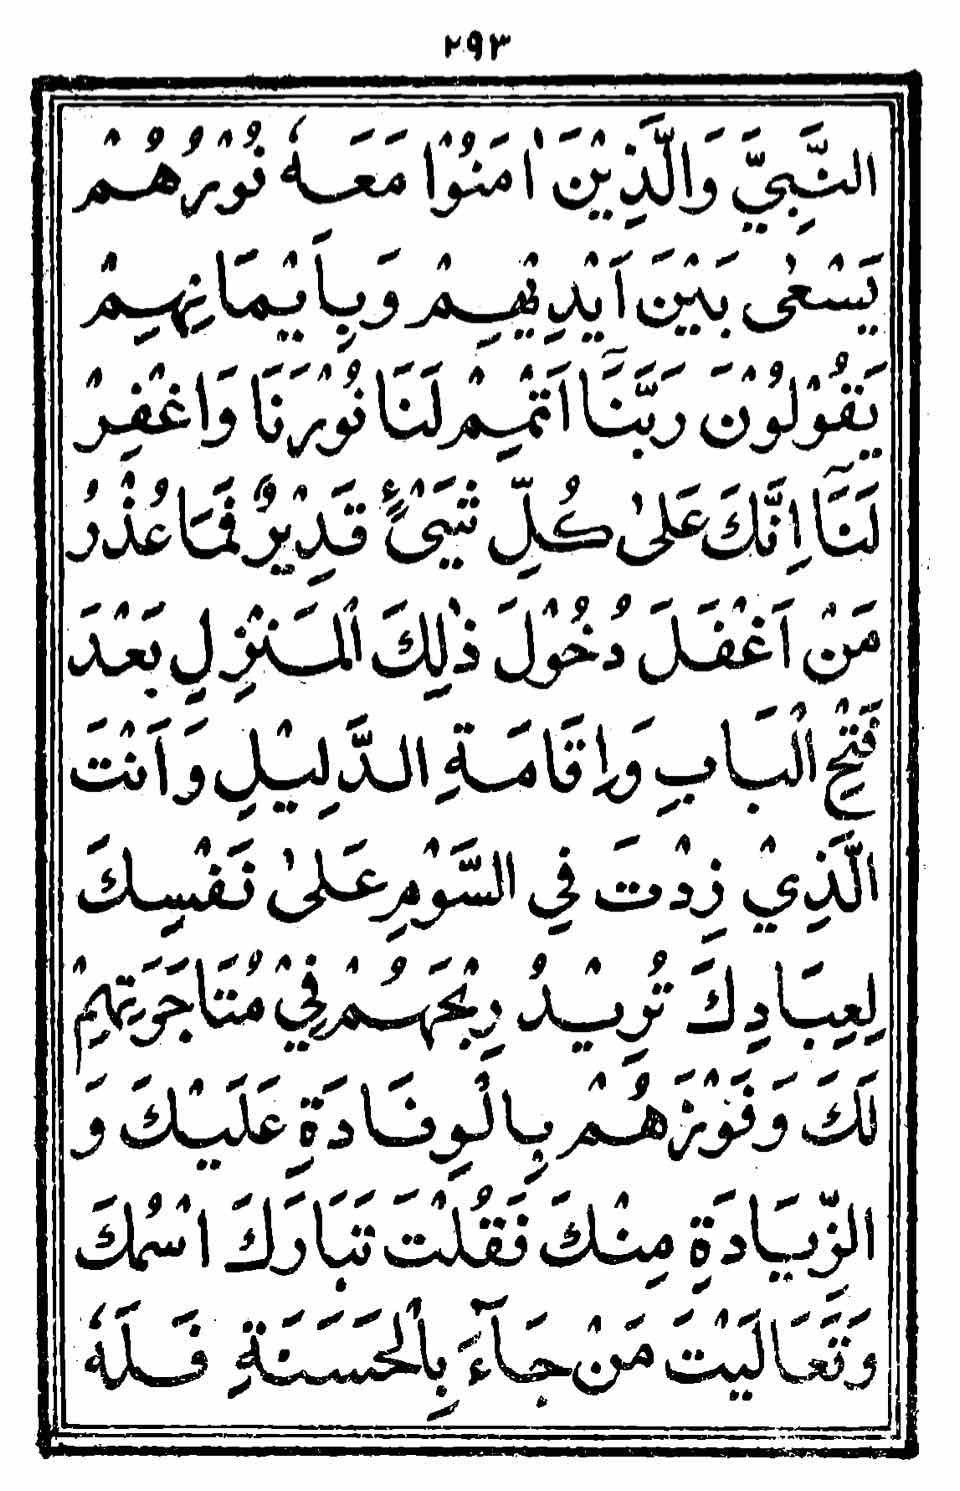 ٢٩٣
النَّبِيَّ وَالَّذِيْنَ اٰمَنُوْا مَعَهٗ نُوْرُهُمْ
يَسْعٰى بَيْنَ اَيْدِيْهِمْ وَبِاَيْمَانِهِمْ
يَقُوْلُوْنَ رَبَّنَآ اَتْمِمْ لَنَا نُوْرَنَا وَاغْفِرْ
لَنَآ اِنَّكَ عَلٰى كُلِّ شَيْءٍ قَدِيْرٌ فَمَا عُذْرُ
مَنْ اَغْفَلَ دُخُوْلَ ذٰلِكَ الْمَنْزِلِ بَعْدَ
فَتْحِ الْبَابِ وَاِقَامَةِ الدَّلِيْلِ وَاَنْتَ
الَّذِيْ زِدْتَ فِي السَّوْمِ عَلٰى نَفْسِكَ
لِعِبَادِكَ تُرِيْدُ رِبْحَهُمْ فِيْ مُتَاجَرَتِهِمْ
لَكَ وَفَوْزَهُمْ بِالْوِفَادَةِ عَلَيْكَ وَ
الزِّيَادَةِ مِنْكَ فَقُلْتَ تَبَارَكَ اسْمُكَ
وَتَعَالَيْتَ مَنْ جَآءَ بِالْحَسَنَةِ فَلَهٗ